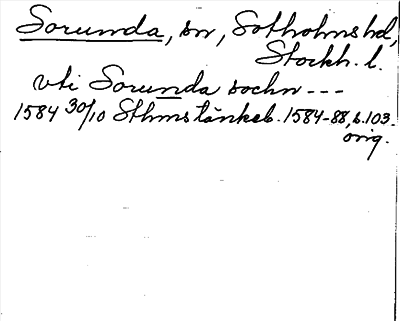 Sorunda, sn, Sotholms hd,
Stockh. l.
vti Sorunda sochn ---
1584 30/10 Sthms tänkeb. 1584-88, s. 103.
orig.